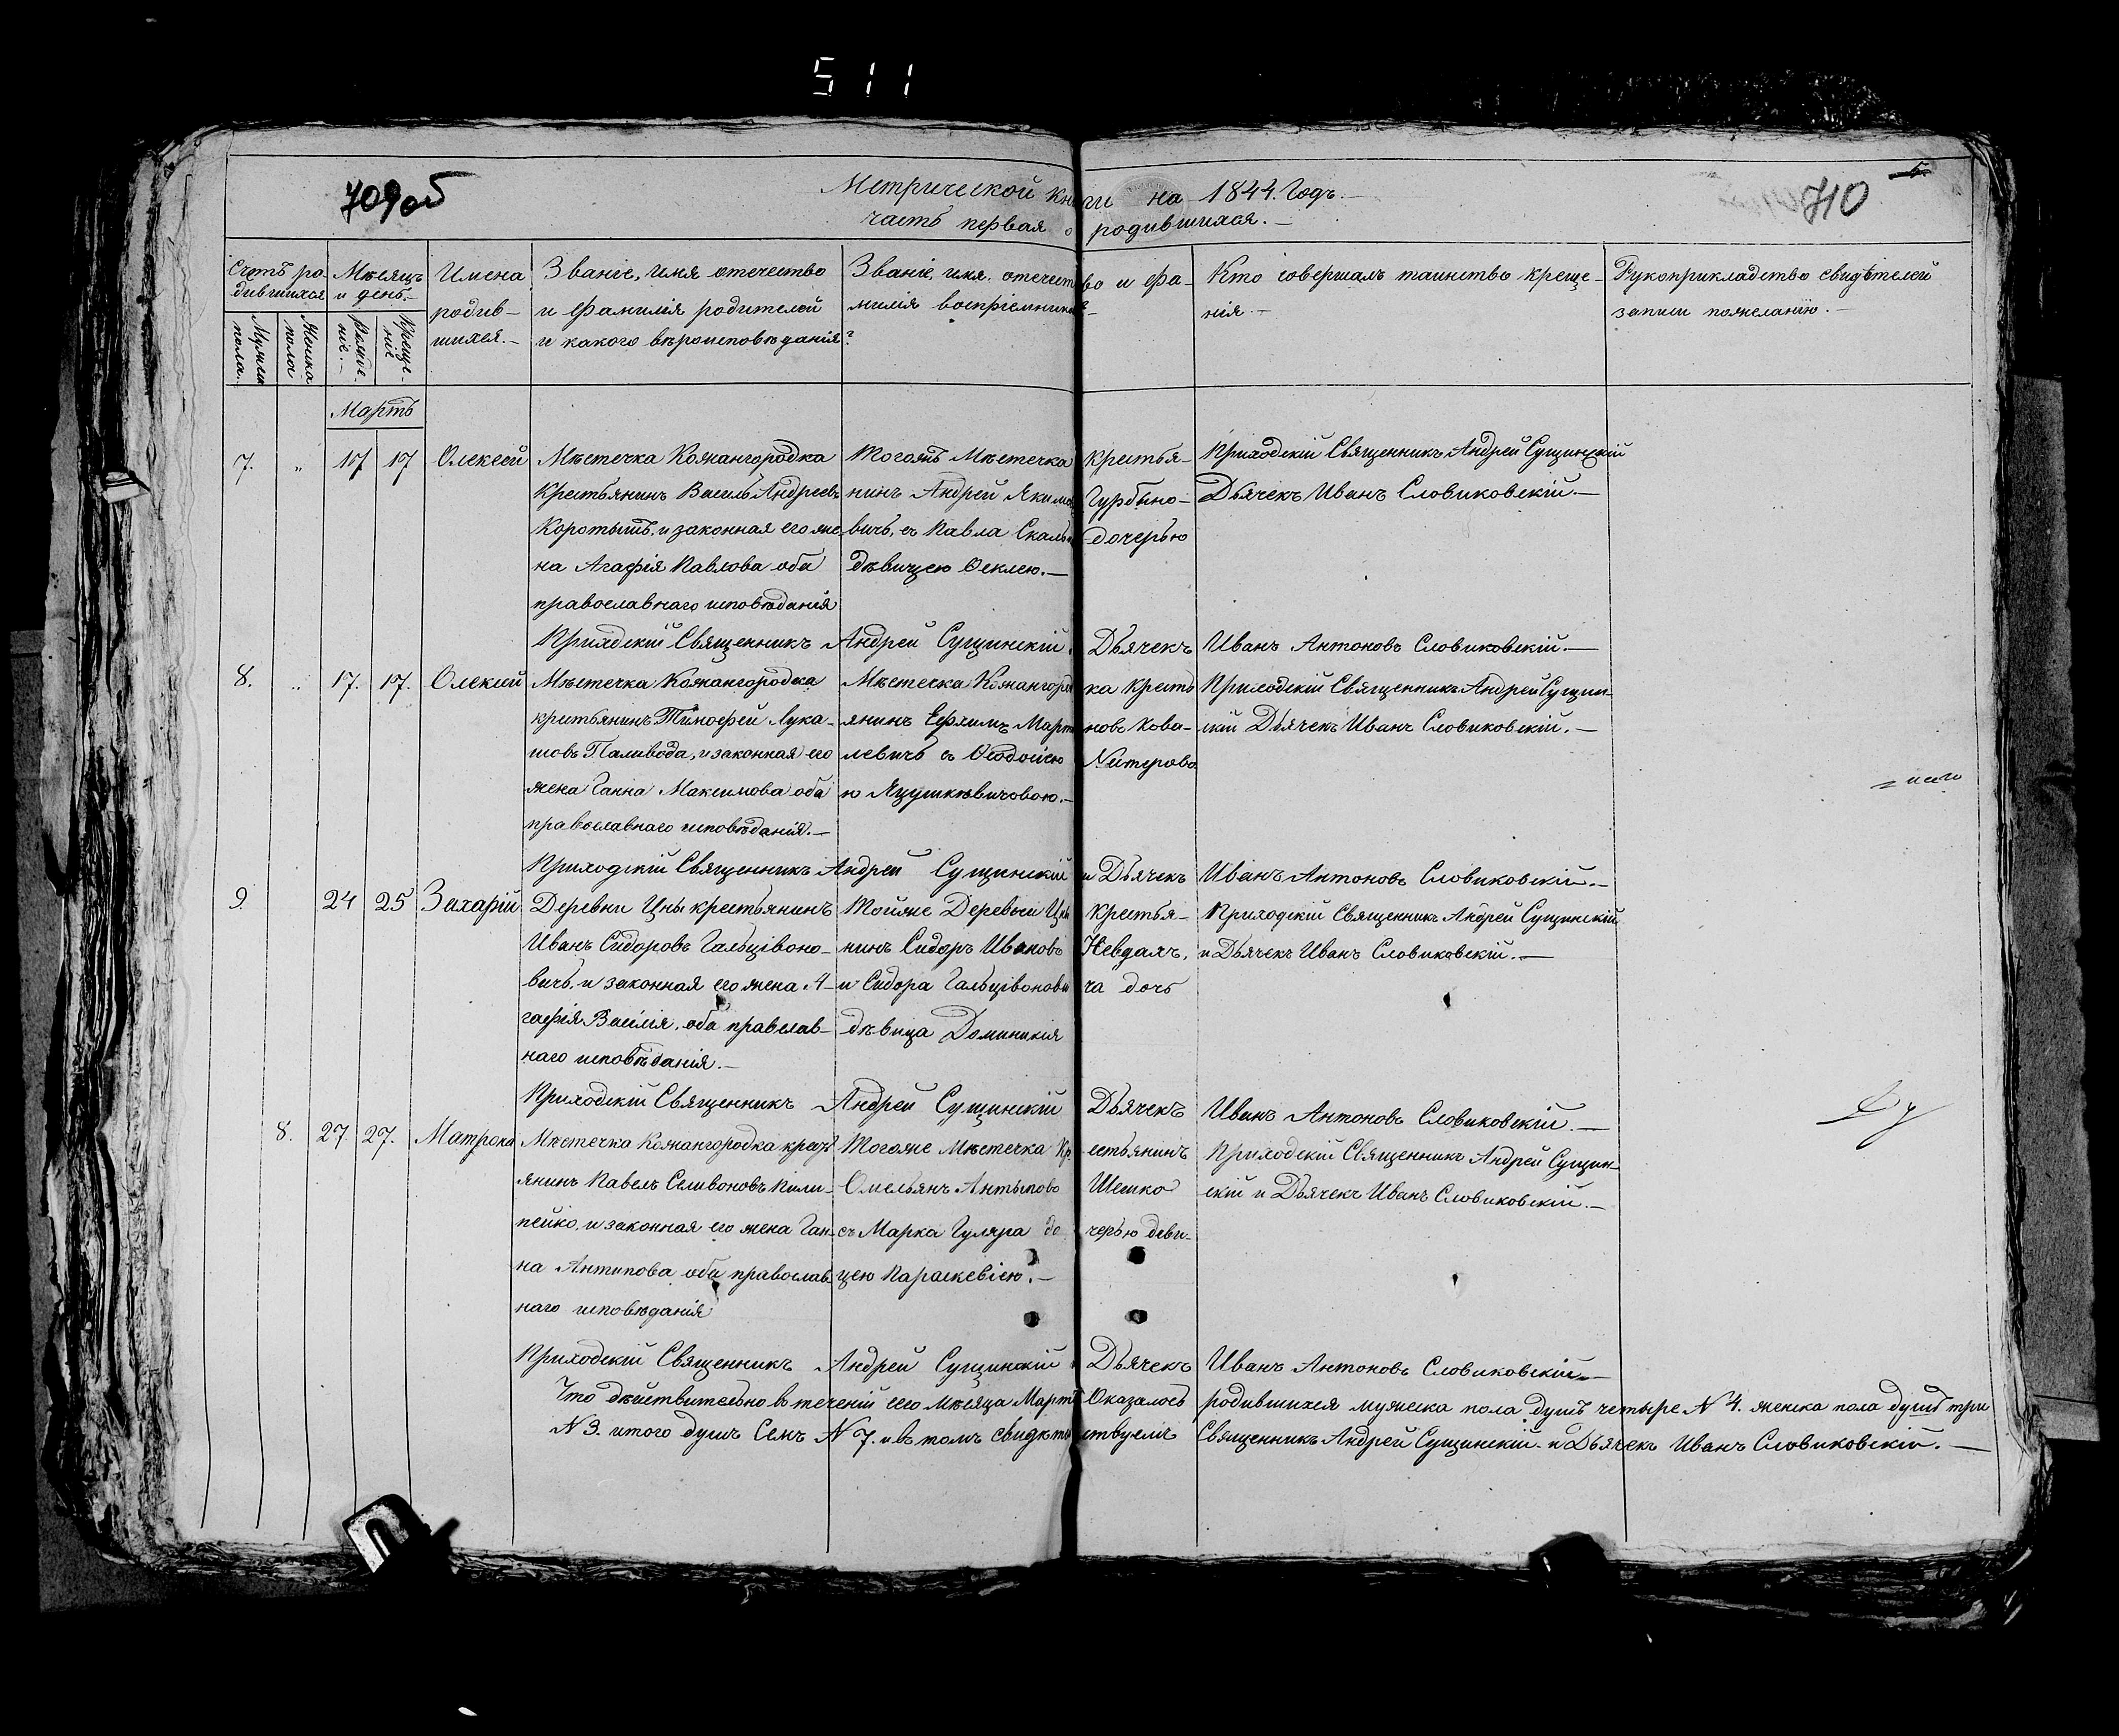 511
709об
710
Метрической книги на 1844. Годъ.—
часть первая о родившихся.—
Счетъ ро-
дившихся
Мѣсяцъ
и день.—
Имена
родив-
шихся.—
Званіе, имя отечество
и Фамилія родителей
и какого вѣроисповѣданія?
Званіе, имя, отечество и Фа-
милія воспріемниковъ?
Кто совершалъ таинство креще-
нія.—
Рукоприкладство свидѣтелей
записи пожеланію.—
Мужеска
пола.
Женска
пола
Рожде-
ніе.—
Креще-
ніе
Мартъ
7. „ 17 17 Олексей
Мѣстечка Кожангородка
Крестьянинъ Василь Андреевъ
Коротышъ, и законная его же-
на Агафія Павлова оба
православнаго исповѣданія
Тогожъ Мѣстечка Крестья-
нинъ Андрей Якимовъ Гурбыно-
вичъ, съ Павла дочерью
дѣвицею Ѳеклею.—
Приходскій Священникъ Андрей Сущинскій
Дьячекъ Иванъ Словиковскій.—
Прихдскій Священникъ Андрей Сущинскій. Дьячекъ Иванъ Антоновъ Словиковскій.—
8. „ 17. 17. Олексей
Мѣстечка Кожангородка
кристьянинъ Тимофей Лука-
шовъ Паливода, и законная его
жена Ганна Максимова оба
православнаго исповѣданія.—
Мѣстечка Кожангородка Кресть
янинъ Ефхимъ Мартиновъ Кова-
левичъ съ Ѳеодосіею Нестерово
ю Яцушкѣвичовою.—
Приходскій Священникъ Андрей Сущин-
скій Дьячекъ Иванъ Словиковскій.—
Приходскій Священникъ Андрей Сущинскій и Дьячекъ Иванъ Антоновъ Словиковскій.—
9. 24 25 Захарій
Деревни Цны крестьянинъ
Иванъ Сидоровъ Гальцівоно-
вичъ, и законная его жена А-
гафія Васілія, оба правслав-
наго исповѣданія.—
Тойже Деревни Цны Крестья-
нинъ Сидоръ Ивановъ Невдахъ,
и Сидора Гальцівоновича дочь
дѣвица Доминикія
Приходскій Священникъ Андрей Сущинскій
и Дьячекъ Иванъ Словиковскій.—
Приходскій Священникъ Андрей Сущинскій Дьячекъ Иванъ Антоновъ Словиковскій.—
8. 27. 27. Матрона
Мѣстечка Кожангородка крест
янинъ Павелъ Селивоновъ Пили-
пейко, и законная его жена Ган-
на Антипова оба православ-
наго исповѣданія
Тогоже Мѣстечка Крестьянинъ
Омельянъ Антыпово Шешко
съ Марка Гуляра дочерью деви-
цею Параскевіею.—
Приходскій Священникъ Андрей Сущин-
скій и Дьячекъ Иванъ Словиковскій.—
Приходскій Священникъ Андрей Сущинскій Дьячекъ Иванъ Антоновъ Словиковскій.—
Что дѣйствительно в теченій сего мѣсяца Марта Оказалось родившихся мужеска пола душъ четыре N 4. женска пола душъ три
N 3. итого душъ Семъ N 7. и въ томъ свидѣтельствуемъ Священникъ Андрей Сущинскій. и Дьячекъ Иванъ Словиковскій.—